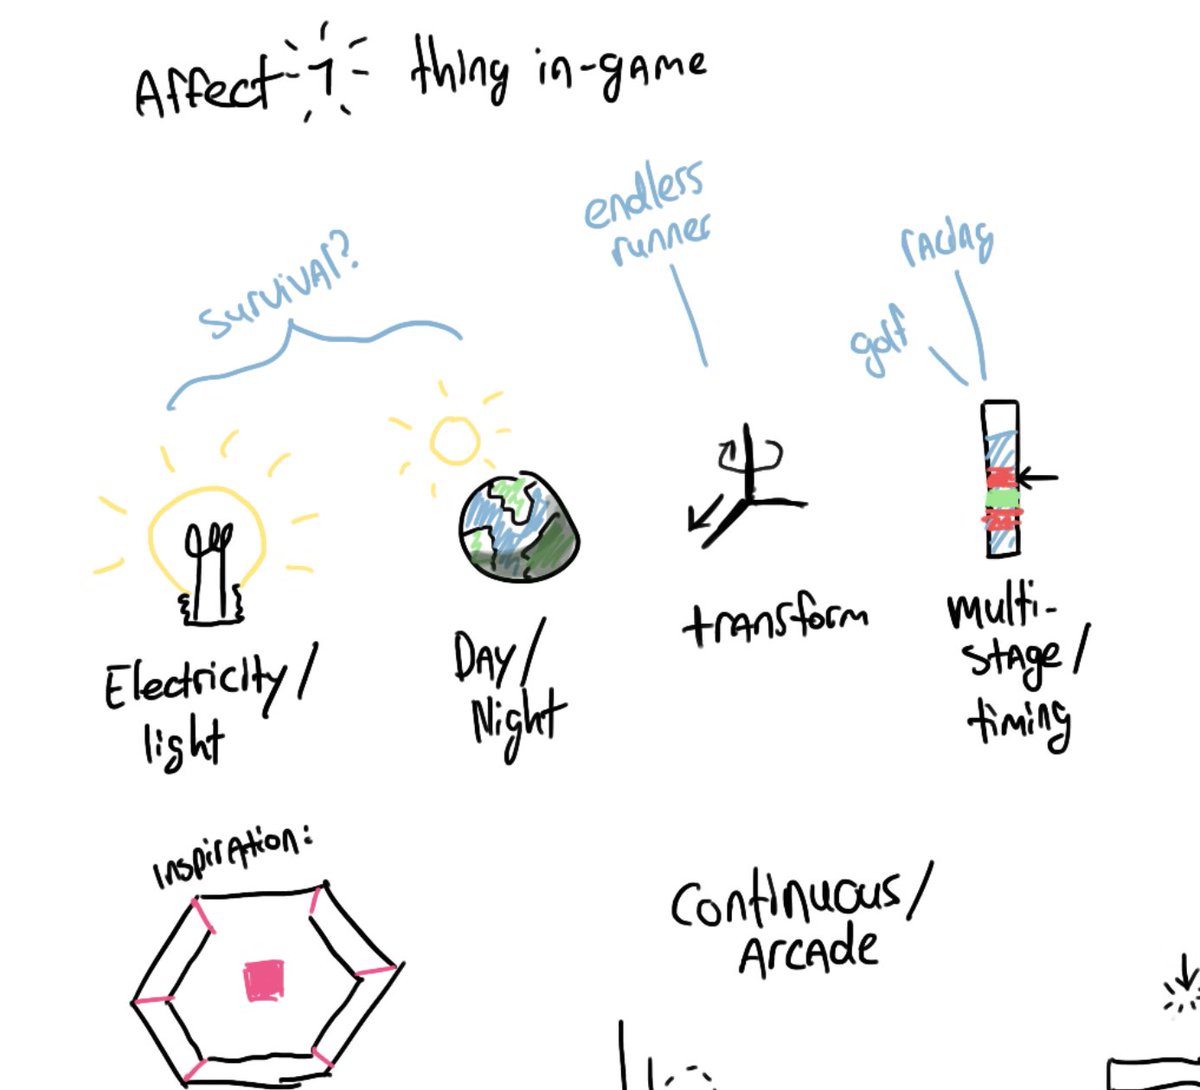 Affect 1 thing in-game
survival?
endless
runner
racing
golf
Electricity/
light
Day/
Night
transform
multi-
stage/
timing
Inspiration:
Continuous/
Arcade